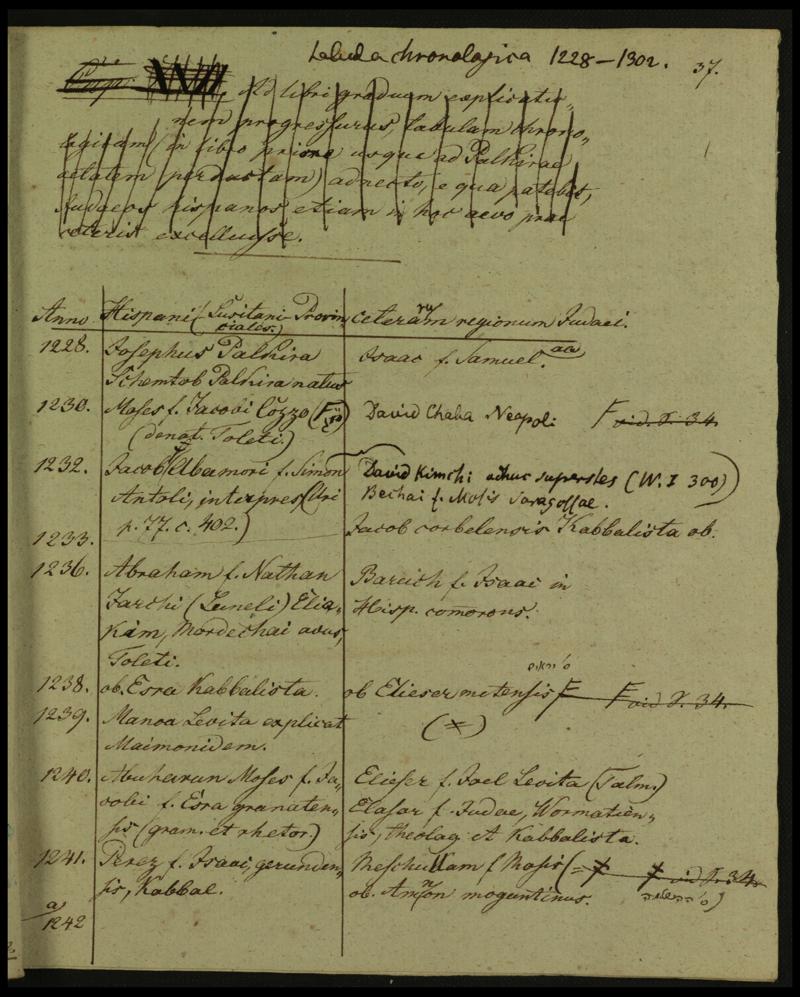 Tabula chronologica 1228–1302.
37.
Cap. XVIII, Ad libri graduum explicatio„
nem progressurus tabulam chrono„
logicam (in libro priore usque ad Palkirae
aetatem perductam) adnecto, e qua patebit,
Judaeos hispanos etiam in hoc aevo prae
ceteris excelluisse.
Anno Hispani (Lusitani-Provin„ ceterarum regionum Judaei.
ciales.)
1228. Josephus Palkira Isaac f. Samuel. aa
Schemtob Palkira natus
1230. Moses f. Jacobi Cozzo (F David Chaba Neapoli F vid. S. 34
(denat. Toleti.)
1232. Jacob Abamori f. Simon David Kimchi adhuc superstes (W. I 300)
Antoli, interpres (Uri Bechai f. Mosis Saragossae.
1233. p. 77. c. 402.) Jacob corbelensis Kabbalista ob.
1236. Abraham f. Nathan Baruch f. Isaac in
Jarchi (Luneli) Elia„ Hisp. comorans.
kim, Mordechai avus,
Toleti.
1238. ob. Esra Kabbalista. ob Elieser metensis F F vid S. 34.
1239. Manoa Levita explicat (x)
Maimonidem.
1240. Abuharun Moses f. Ja„ Elieser f. Joel Levita (Talm.)
cobi f. Esra granaten„ Elasar f. Judae, Wormatien„
sis (gram. et rhetor.) sis, theolog. et Kabbalista.
1241. Perez f. Isaac, gerunden„ Meschullam f Mosis (= x x vid S. 34.
sis, Kabbal. ob. Amnon moguntinus.
a
1242